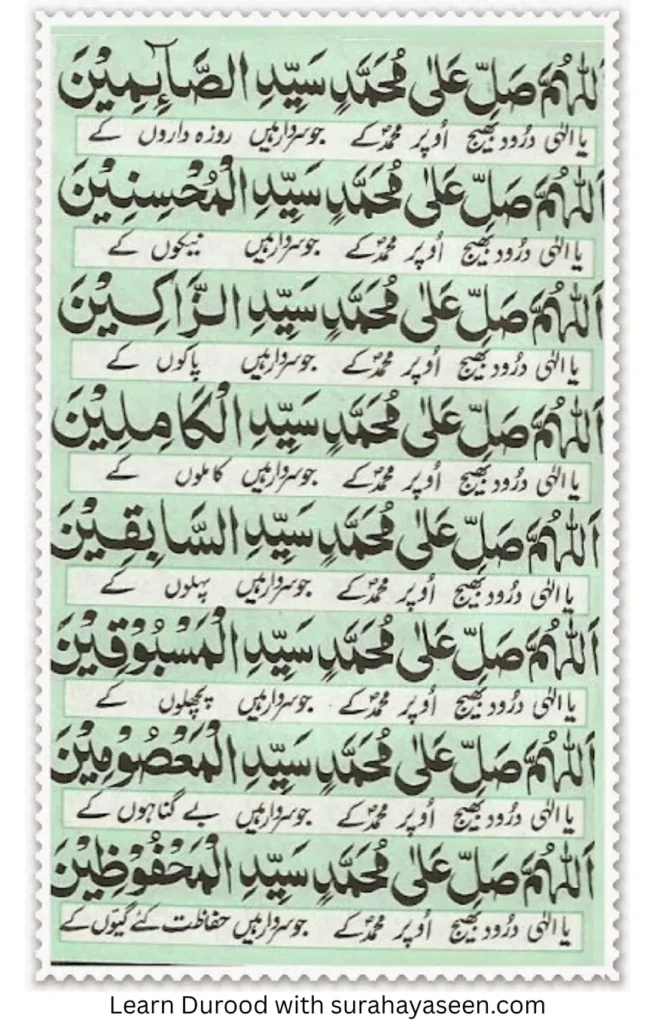 اَللّٰهُمَّ صَلِّ عَلٰى مُحَمَّدٍ سَيِّدِ الصَّآئِمِيْنَ
یا الٰہی درُود بھیج اُوپر محمدؐ کے جو سردار ہیں روزہ داروں کے
اَللّٰهُمَّ صَلِّ عَلٰى مُحَمَّدٍ سَيِّدِ الْمُحْسِنِيْنَ
یا الٰہی درُود بھیج اُوپر محمدؐ کے جو سردار ہیں نیکوں کے
اَللّٰهُمَّ صَلِّ عَلٰى مُحَمَّدٍ سَيِّدِ الزَّاكِيْنَ
یا الٰہی درُود بھیج اُوپر محمدؐ کے جو سردار ہیں پاکوں کے
اَللّٰهُمَّ صَلِّ عَلٰى مُحَمَّدٍ سَيِّدِ الْكَامِلِيْنَ
یا الٰہی درُود بھیج اُوپر محمدؐ کے جو سردار ہیں کاملوں کے
اَللّٰهُمَّ صَلِّ عَلٰى مُحَمَّدٍ سَيِّدِ السَّابِقِيْنَ
یا الٰہی درُود بھیج اُوپر محمدؐ کے جو سردار ہیں پہلوں کے
اَللّٰهُمَّ صَلِّ عَلٰى مُحَمَّدٍ سَيِّدِ الْمَسْبُوْقِيْنَ
یا الٰہی درُود بھیج اُوپر محمدؐ کے جو سردار ہیں پچھلوں کے
اَللّٰهُمَّ صَلِّ عَلٰى مُحَمَّدٍ سَيِّدِ الْمَعْصُوْمِيْنَ
یا الٰہی درُود بھیج اُوپر محمدؐ کے جو سردار ہیں بے گناہوں کے
اَللّٰهُمَّ صَلِّ عَلٰى مُحَمَّدٍ سَيِّدِ الْمَحْفُوْظِيْنَ
یا الٰہی درُود بھیج اُوپر محمدؐ کے جو سردار ہیں حفاظت کئے گیوں کے
Learn Durood with surahayaseen.com